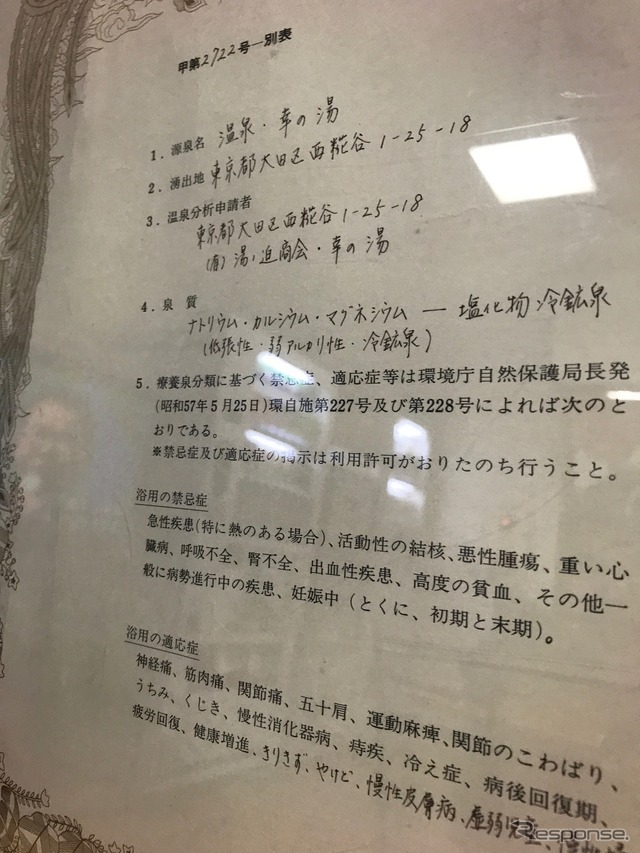 甲第2722号―別表
1. 源泉名 温泉・幸の湯
2. 湧出地 東京都大田区西糀谷1-25-18
3. 温泉分析申請者
東京都大田区西糀谷1-25-18
(有)湯ノ迫商会・幸の湯
4. 泉 質
ナトリウム・カルシウム・マグネシウム ― 塩化物冷鉱泉
(低張性・弱アルカリ性・冷鉱泉)
5. 療養泉分類に基づく禁忌症、適応症等は環境庁自然保護局長発
(昭和57年5月25日)環自施第227号及び第228号によれば次のと
おりである。
※禁忌症及び適応症の掲示は利用許可がおりたのち行うこと。
浴用の禁忌症
急性疾患(特に熱のある場合)、活動性の結核、悪性腫瘍、重い心
臓病、呼吸不全、腎不全、出血性疾患、高度の貧血、その他一
般に病勢進行中の疾患、妊娠中(とくに、初期と末期)。
浴用の適応症
神経痛、筋肉痛、関節痛、五十肩、運動麻痺、関節のこわばり、
うちみ、くじき、慢性消化器病、痔疾、冷え症、病後回復期、
疲労回復、健康増進、きりきず、やけど、慢性皮膚病、虚弱児童、
Response.